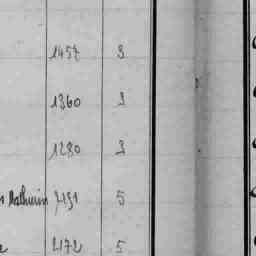 1457 3
1360 3
1280 3
Mathurin 2151 5
2172 5